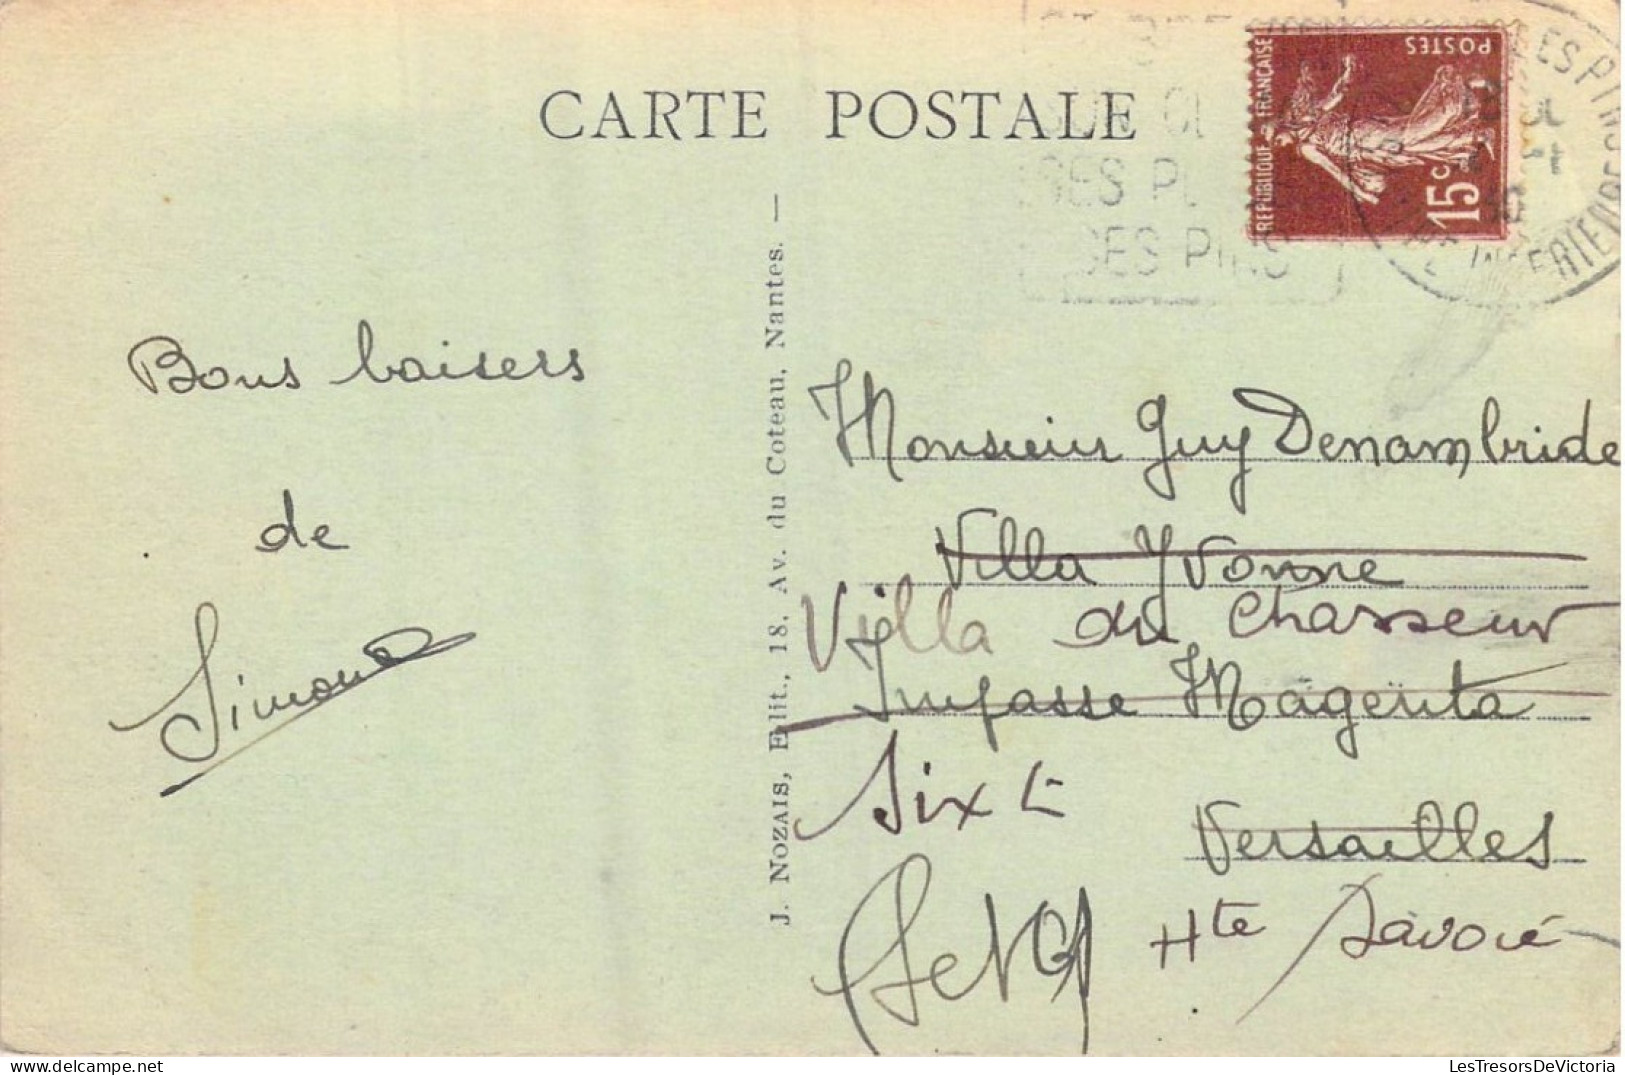 CARTE POSTALE
POSTES
REPUBLIQUE FRANÇAISE
15 C
DES PINS
ES PINS
INFERIEURE
J. NOZAIS, Edit., 18, Av. du Coteau, Nantes. —
Bons baisers
de
Simone
Monsieur Guy Denambride
Villa Yvonne
Villa du Chasseur
Impasse Magenta
Sixt
Versailles
Hte Savoie
LesTresorsDeVictoria
www.delcampe.net